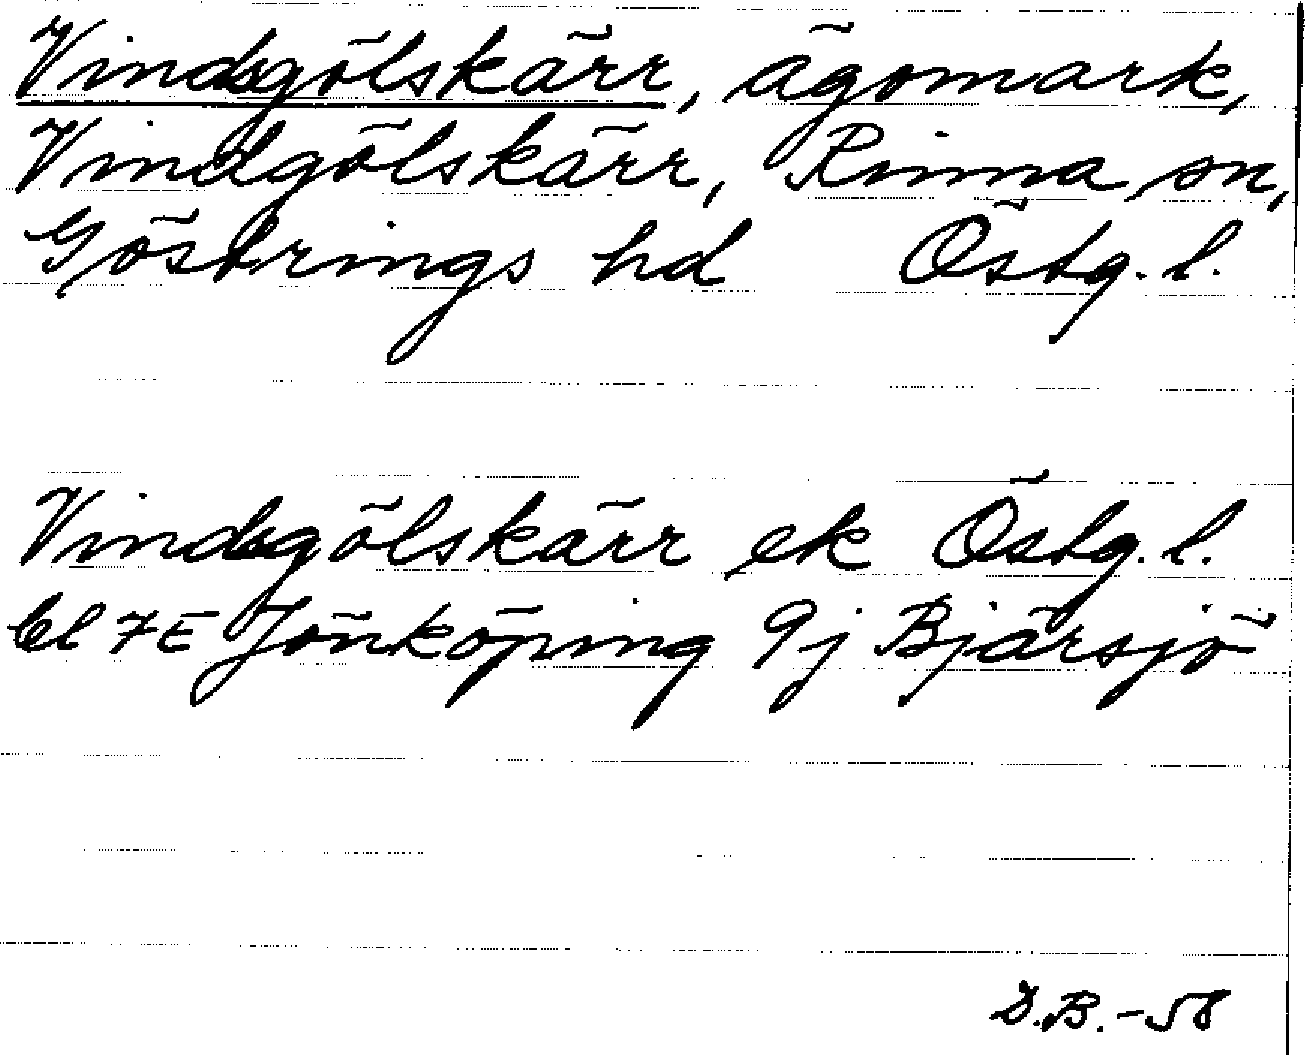 Vindsgölskärr, ägomark,
Vindgölskärr, Rinna sn,
Göstrings hd Östg. l.
Vindsgölskärr ek Östg. l.
bl 7E Jönköping 9j Bjärsjö
D.B.-58